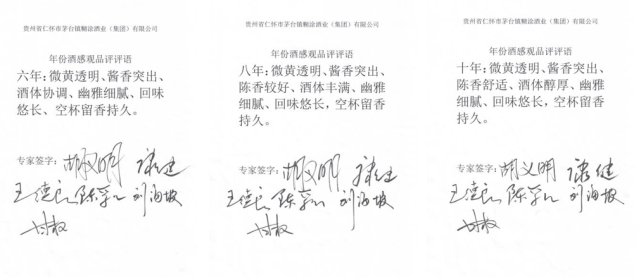 贵州省仁怀市茅台镇糊涂酒业（集团）有限公司
年份酒感观品评评语
六年：微黄透明、酱香突出、
酒体协调、幽雅细腻、回味
悠长、空杯留香持久。
专家签字：胡义明 康健
王德良 陈孚 刘海坡
贵州省仁怀市茅台镇糊涂酒业（集团）有限公司
年份酒感观品评评语
八年：微黄透明、酱香突出、
陈香较好、酒体丰满、幽雅
细腻、回味悠长，空杯留香
持久。
专家签字：胡义明 康健
王德良 陈孚 刘海坡
贵州省仁怀市茅台镇糊涂酒业（集团）有限公司
年份酒感观品评评语
十年：微黄透明、酱香突出、
陈香舒适、酒体醇厚、幽雅
细腻、回味悠长、空杯留香
持久。
专家签字：胡义明 康健
王德良 陈孚 刘海坡